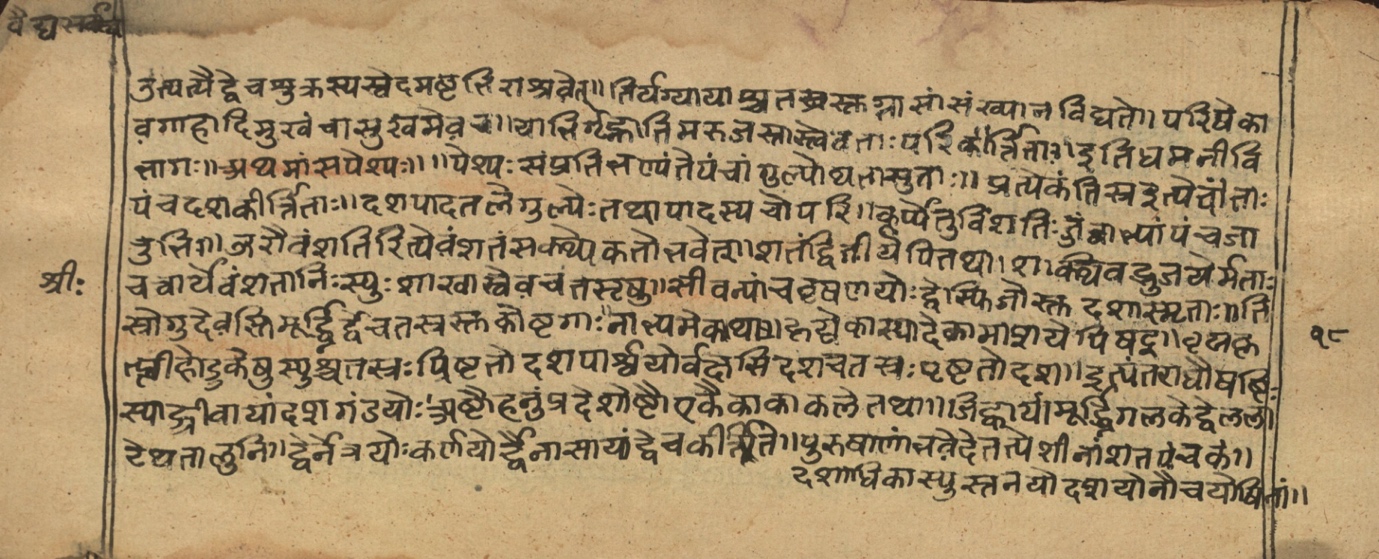 वैद्यसर्वस्व
तुत्पत्यै द्वे च शुक्रस्य स्वेदमष्टभिराश्रवेत्॥ तिर्यग्याया श्च तस्रस्क्त ग्नासां संख्या न विद्यते॥ परिषेका
वगाहादिसुखं चासुखमेव च॥ याभिर्गृह्णाति मरुज स्ता स्त्वेवताः परिकीर्त्तिताः॥ इति धमनीवि
भागः॥ अथ मांसपेश्यः॥ ॥ पेश्यः संप्रति भण्यंते पंचांगुल्योथ तासु ताः॥ प्रत्येकं तिस्र इत्येवं ताः
पंचदश कीर्त्तिताः॥ दश पादतले गुल्फेः तथा पादस्य चोपरि॥ कूर्प्पेतु विंशतिः जंघाभ्यां पंच जा
नुनि॥ ऊरौ विंशतिरित्येवं शतं सक्थ्येकतो भवेत्॥ शतं द्वितीये पि तथा॥ शक्थिवद्भुजयोर्मताः
चत्वार्येवं शतानिः स्युः शाखास्वेव च तसृषु॥ सीवन्यां च वृषणयोः द्वे स्फिजौ स्क्त दशा स्मृताः॥ ति
स्रो गुदे वस्ति मूर्द्ध्नि द्वे चतस्रस्क्त कोष्टगाः नाभ्यमेका तथा॥ हृद्येका स्यादेका माशये पि षट्॥ यकृत्
प्लीहोडुकेषु स्युश्चतस्रः पिष्टतो दश पार्श्वयोर्वक्षसि दश चतस्रः पृष्टतो दश॥ इत्यंतराधौ षष्टिः
स्याद्ग्रीवायां दश गंडयोः अष्टौ हनुप्रदेशेष्टौ एकैका काकले तथा॥ जिह्वायां मूर्द्ध्नि गलके द्वे लला
टे थ तालुनि॥ द्वे नेत्रयोः कर्णयो र्द्वे नासायां द्वे च कीर्त्तिते॥ पुरुषाणां भवेदेतत्पेशीनां शतपंचकं॥
दशाधिका स्यु स्तनयो दश योनौ च योषितां॥
श्रीः
१८